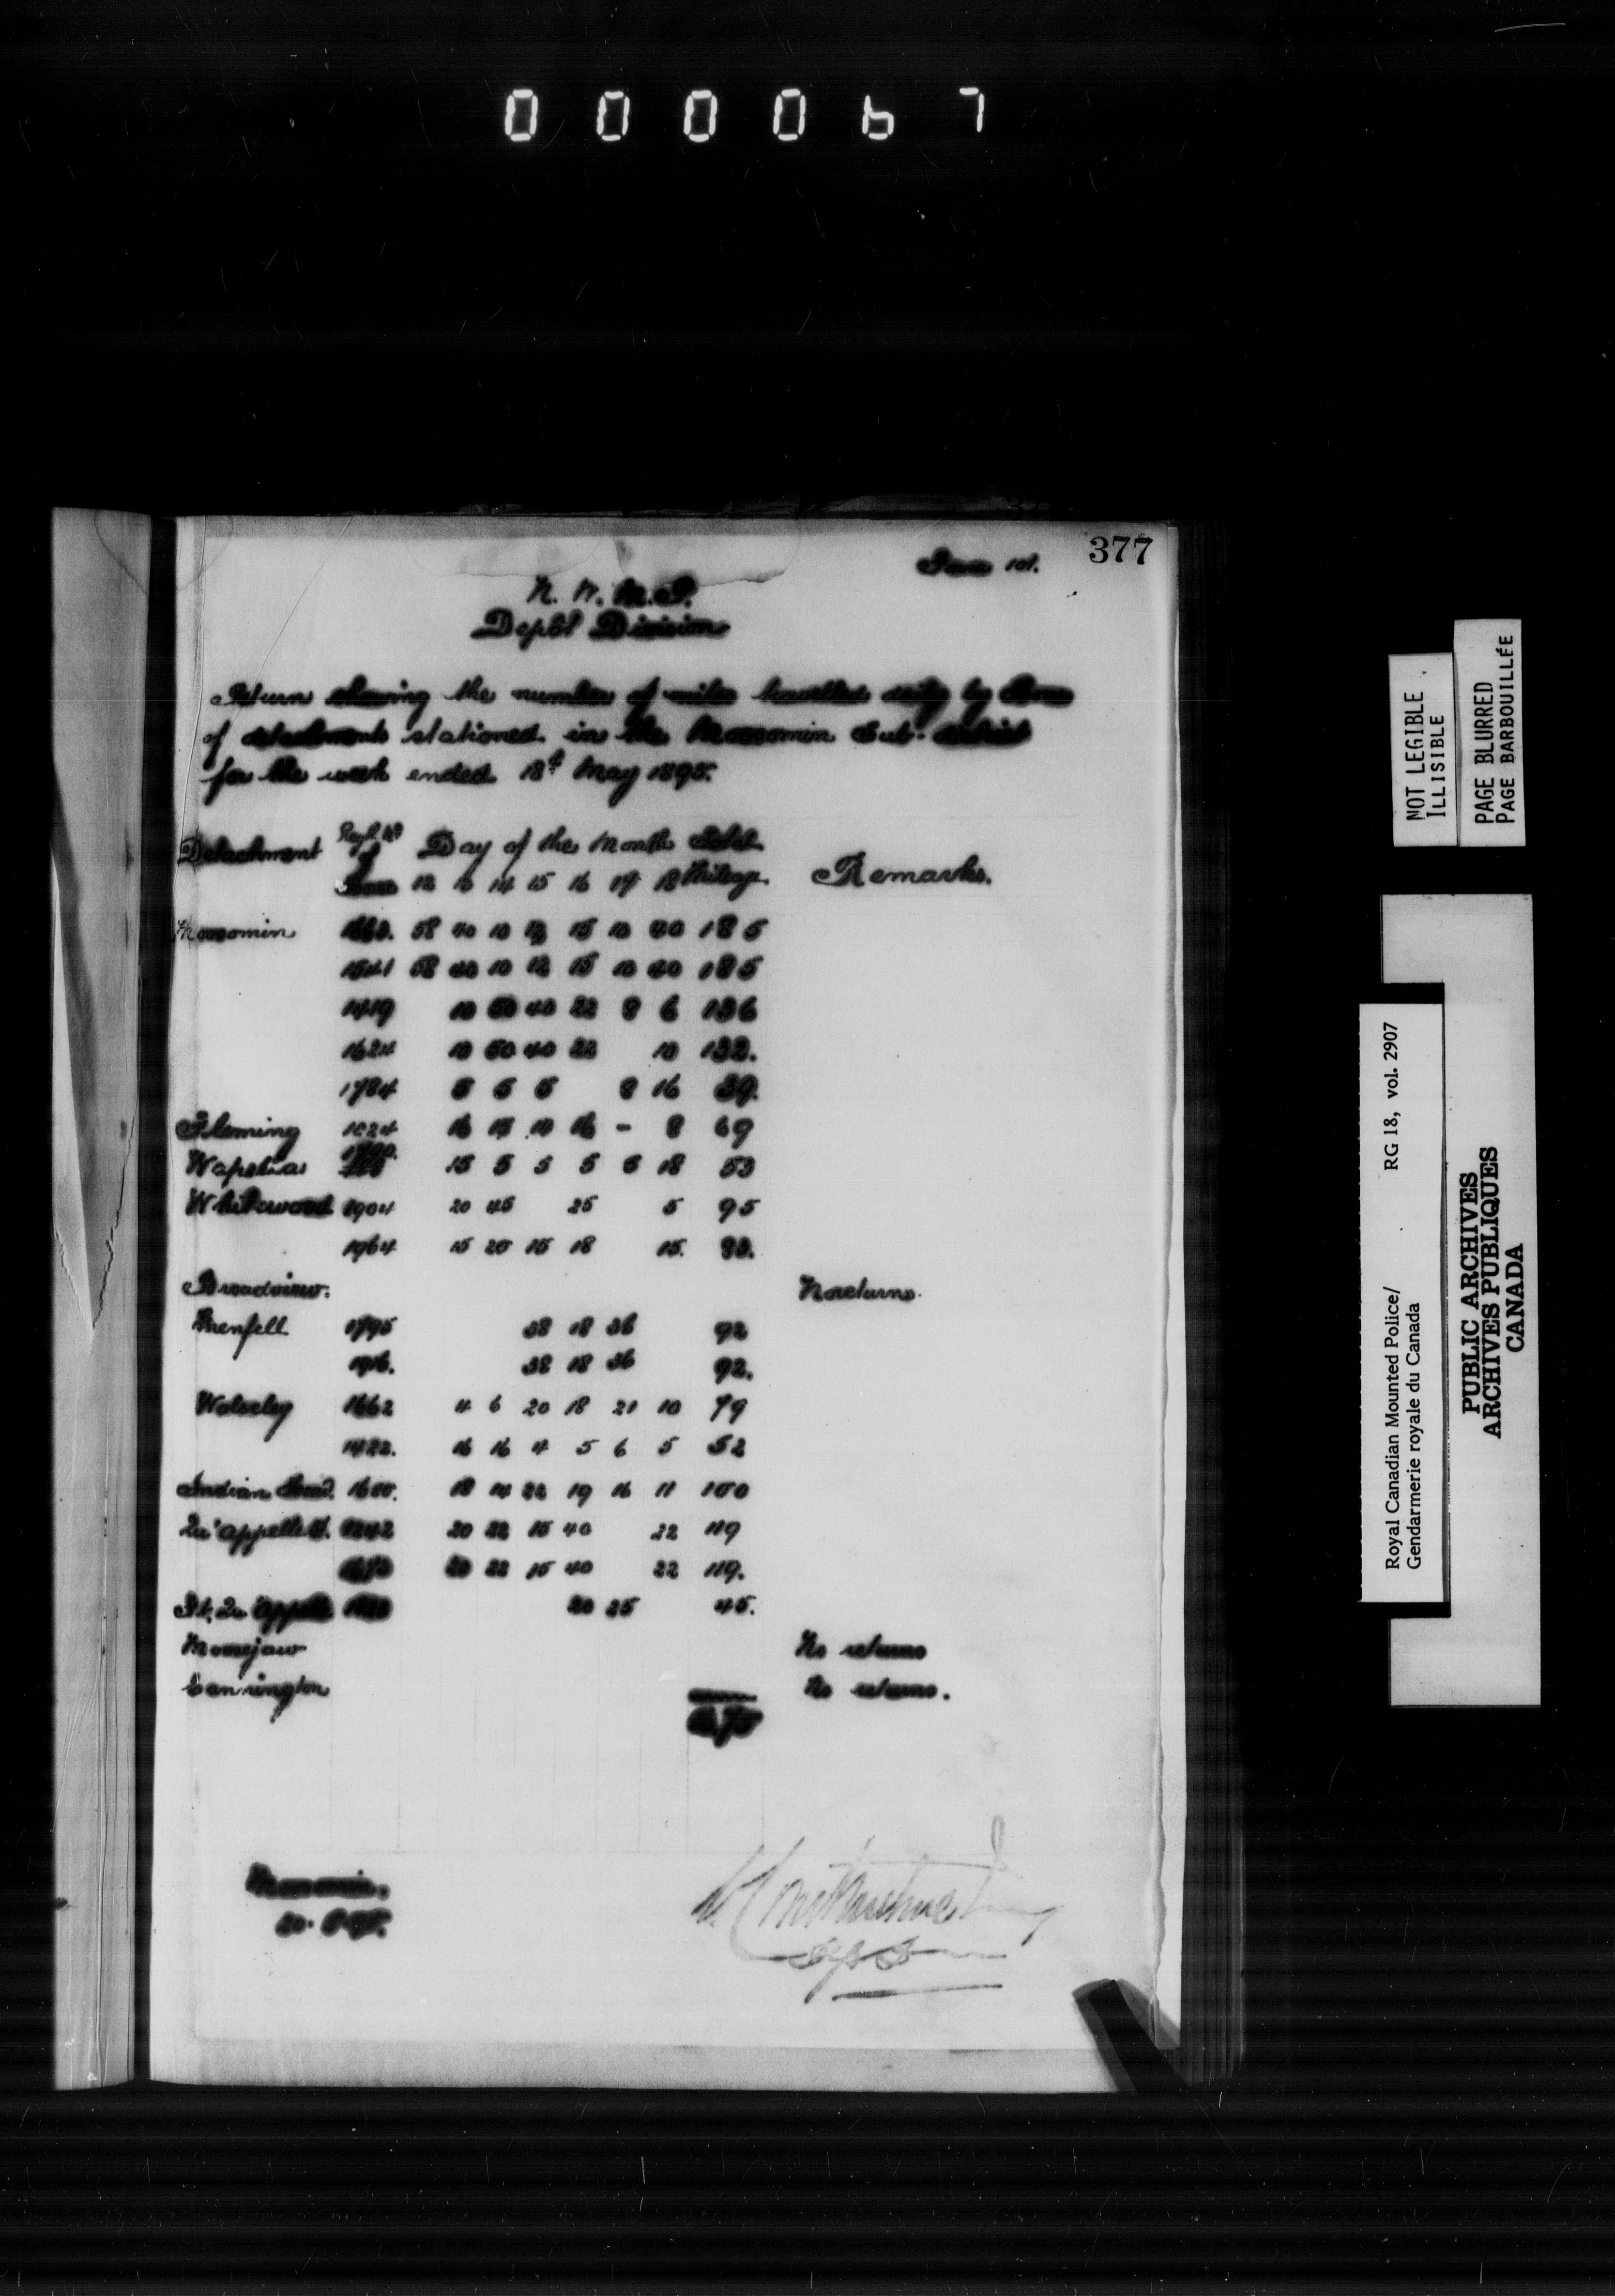 000067
377
Form 101.
N. W. M. P.
Depôt Division
Return showing the number of miles travelled daily by Horses
of detachments stationed in the Moosomin Sub-district
for the week ended 18th May 1895.
Detachment Regtl No of Horse Day of the Month Total Mileage. Remarks.
12 13 14 15 16 17 18
Moosomin 58 40 10 12 15 10 40 185
1541 58 40 10 12 15 10 40 185
1419 10 50 40 22 8 6 136
1624 10 50 40 22 10 132.
1784 5 5 5 8 16 39.
Fleming 1024 16 15 14 16 - 8 69
Wapella 15 5 5 5 5 18 53
Whitewood 1904 20 45 25 5 95
1964 15 20 15 18 15. 83.
Broadview. No returns.
Grenfell 1795 38 18 36 92
1916. 38 18 36 92.
Wolseley 1662 4 6 20 18 21 10 79
1422. 16 16 4 5 6 5 52
Indian Head. 18 14 22 19 16 11 100
Qu'appelle S. 20 22 15 40 22 119
20 22 15 40 22 119.
Ft. Qu'appelle 20 25 45.
Moosejaw No returns
Cannington No returns.
Moosomin.
20.5.95.
NOT LEGIBLE
ILLISIBLE
PAGE BLURRED
PAGE BARBOUILLÉE
Royal Canadian Mounted Police/ RG 18, vol. 2907
Gendarmerie royale du Canada
PUBLIC ARCHIVES
ARCHIVES PUBLIQUES
CANADA